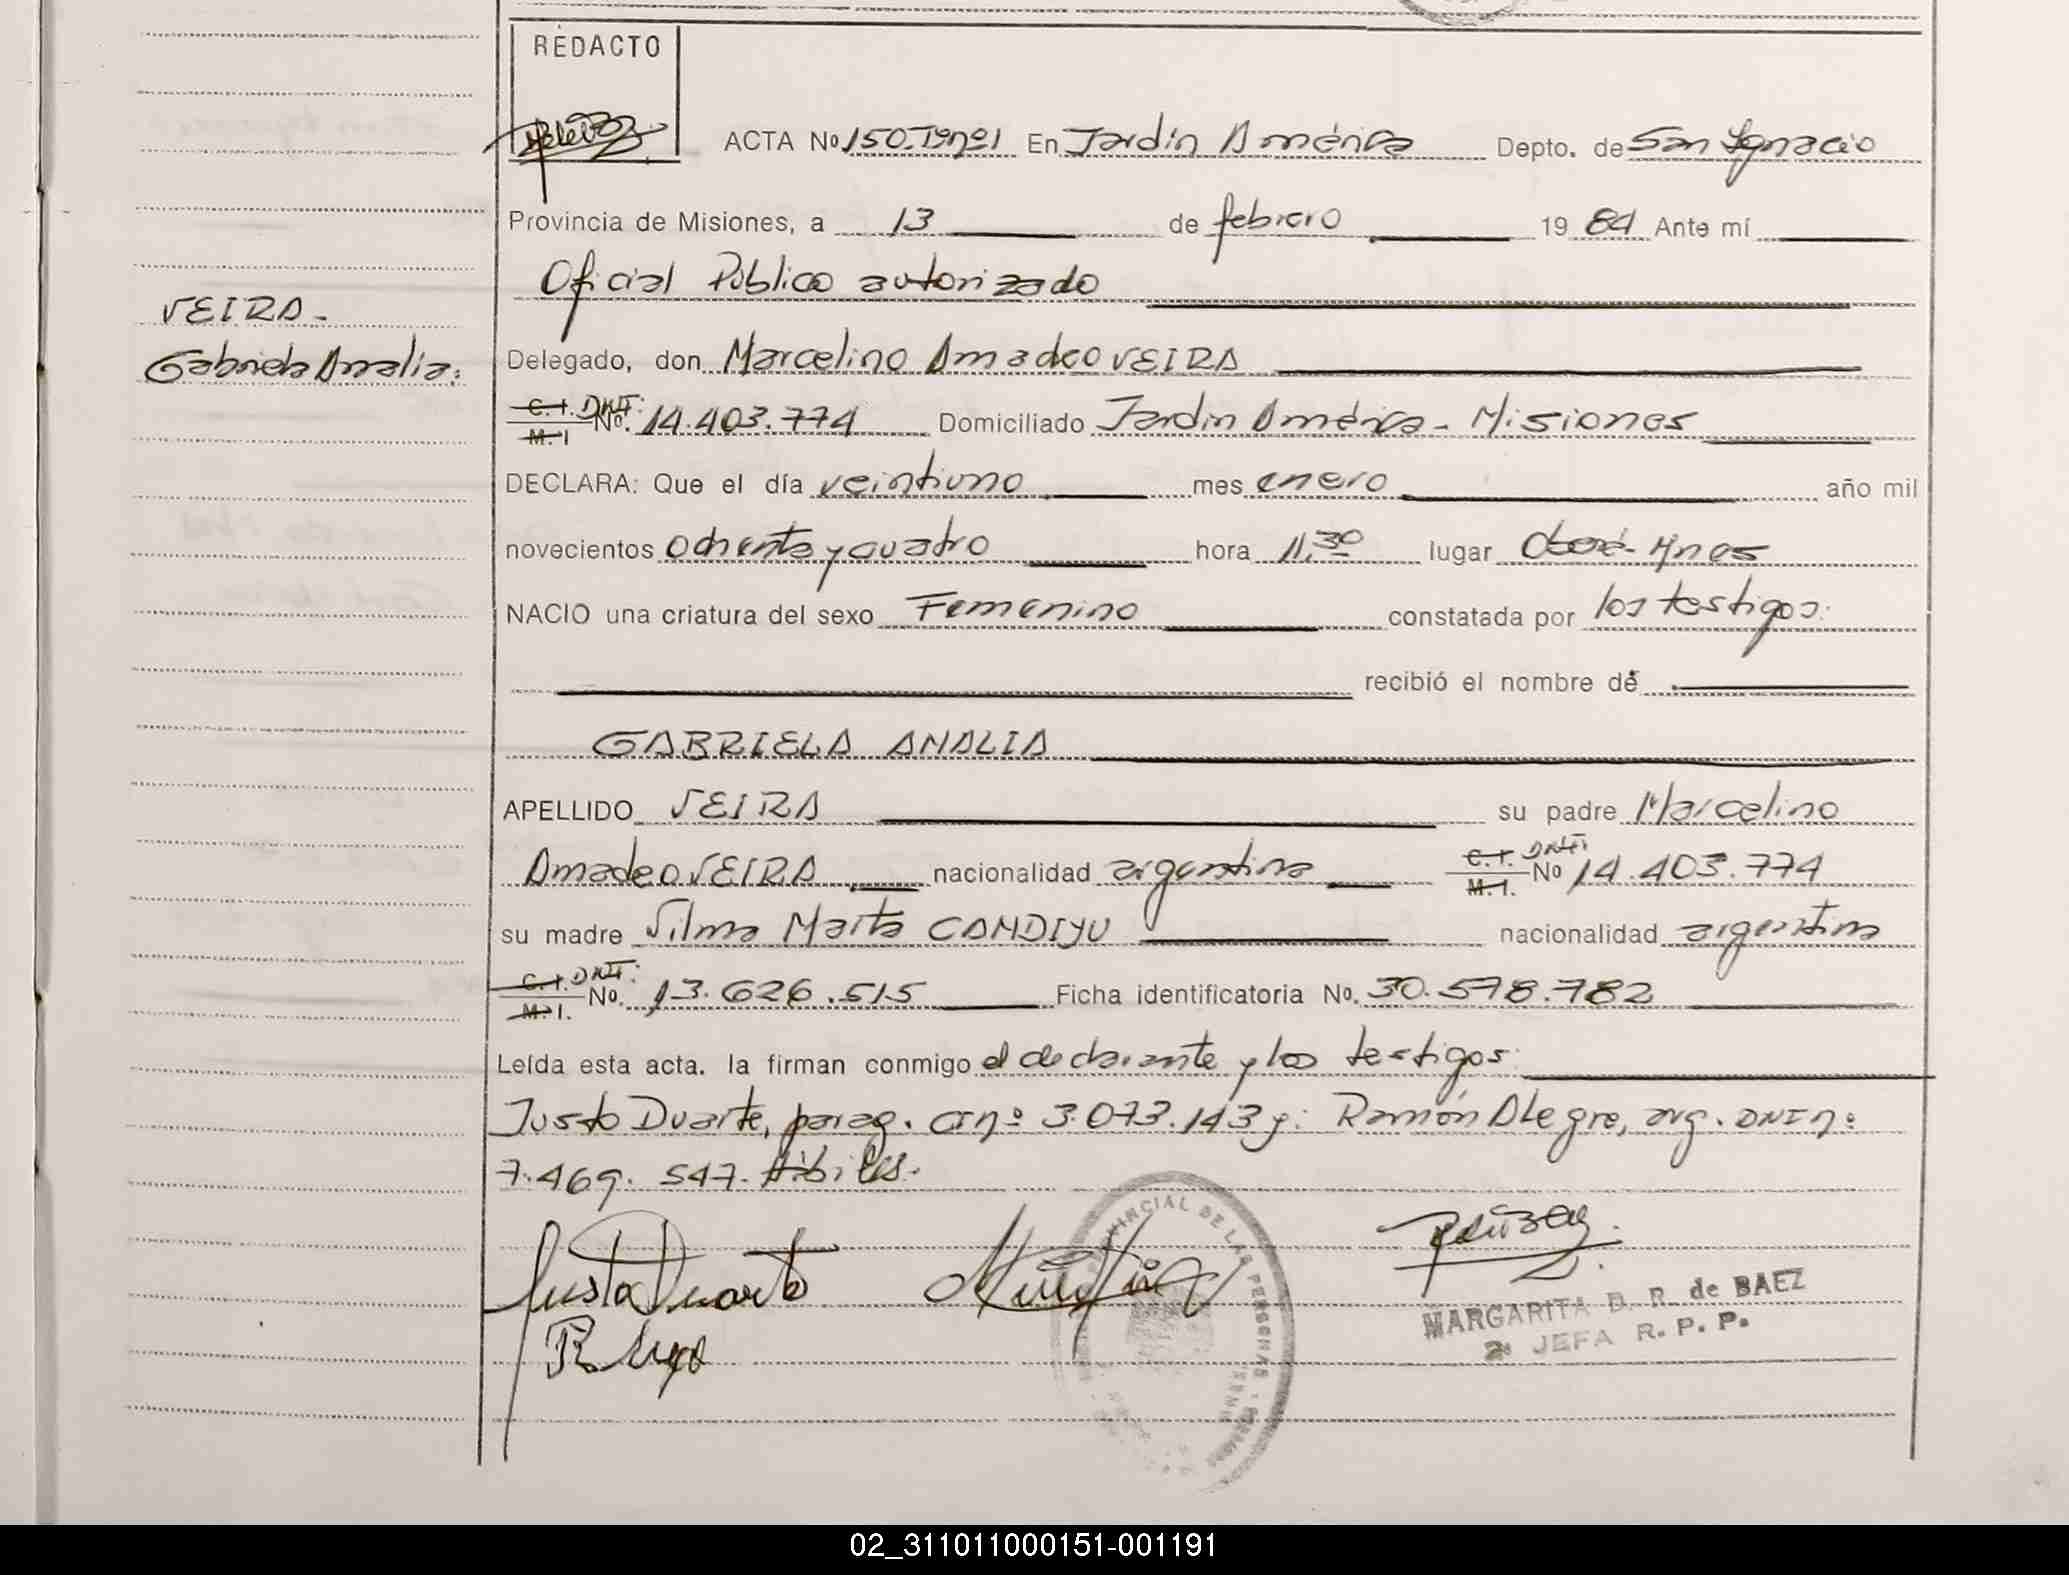 REDACTO
ACTA No 150. Tº nº 1 En Jardín América Depto. de San Ignacio
Provincia de Misiones, a 13 de febrero 19 84 Ante mí
Oficial Público autorizado
VEIRA-
Gabriela Analia:
Delegado, don Marcelino Amadeo VEIRA
C. I. DNI: M. I No. 14.403.774 Domiciliado Jardin América - Misiones
DECLARA: Que el día veintiuno mes enero año mil
novecientos ochenta y cuatro hora 11,30 lugar Oberá- Mnes
NACIO una criatura del sexo Femenino constatada por los testigos:
recibió el nombre de
GABRIELA ANALIA
APELLIDO VEIRA su padre Marcelino
Amadeo VEIRA nacionalidad argentina C. I. DNI: M. I. No 14.403.774
su madre Vilma Marta CANDIYU nacionalidad argentina
C. I. DNI: M. I. No. 13.626.515 Ficha identificatoria No. 30.578.782
Leída esta acta. la firman conmigo el declarante y los testigos:
Justo Duarte, parag. CI nº 3.073.143 y: Ramón Alegre, arg. DNI nº
7.469.547. Hábiles.
Justo Duarte
PROVINCIAL DE LAS PERSONAS
MARGARITA B. R. de BAEZ
2ª JEFA R. P. P.
02_311011000151-001191